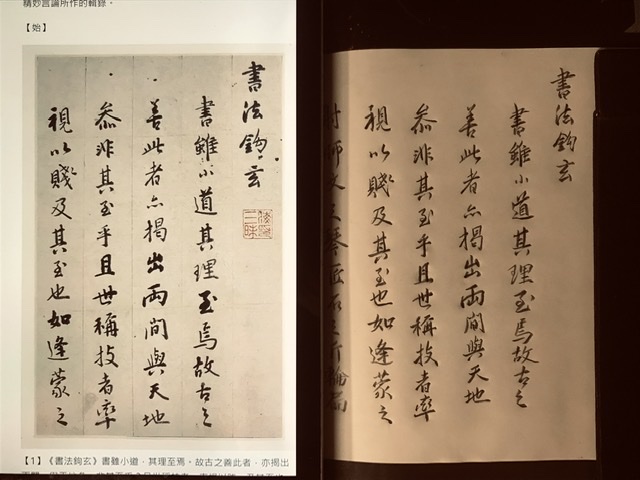 精妙言論所作的輯錄。
【始】
書法鈎玄
書雖小道其理至焉故古之
善此者亦揭出兩間與天地
叅非其至乎且世稱技者率
視以賤及其至也如逢蒙之
三昧
【1】《書法鉤玄》書雖小道，其理至焉。故古之善此者，亦揭出
書法鈎玄
書雖小道其理至焉故古之
善此者亦揭出兩間與天地
叅非其至乎且世稱技者率
視以賤及其至也如逢蒙之
射師文之琴匠石之斤